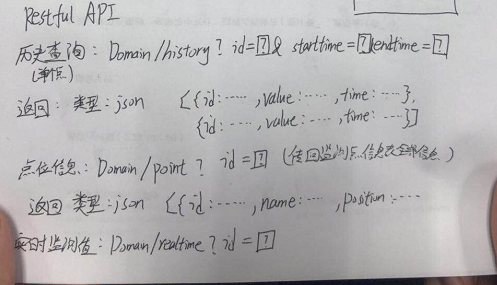 Restful API
历史查询: Domain/history? id=?& starttime=?&endtime=?
(单点)
返回: 类型: json [{id:······, value:·····, time:····},
{id:·····, value:·····, time:····}]
点位信息: Domain/point? id=? (传回监测点信息及全部信息)
返回 类型: json [{id:······, name:····, position:····
实时监测值: Domain/realtime? id=?